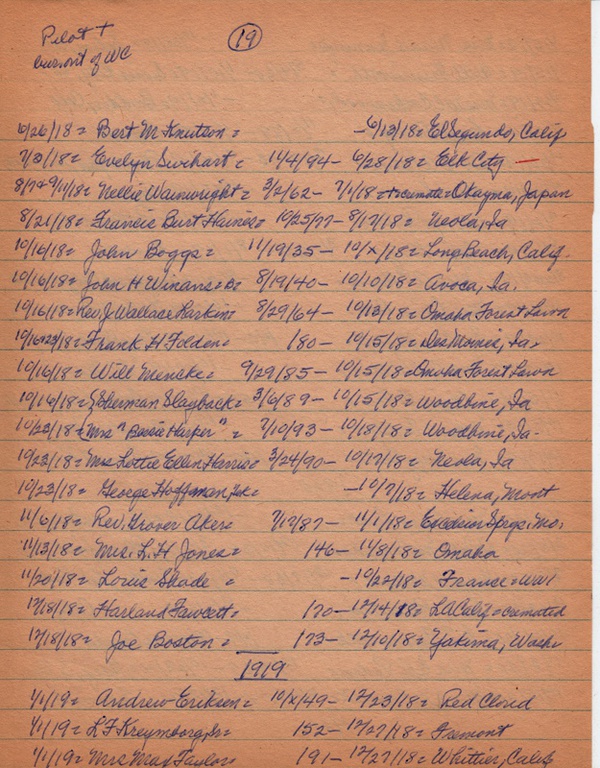 Pilot +
19
of WC
6/26/18 = Bert M Knutson = - 6/13/18 = El Segundo, Calif
7/3/18 = Evelyn Swihart = 11/4/94 - 6/28/18 = Elk City —
8/7+ 9/11/18 = Nellie Wainwright = 3/2/62 - 7/1/18 = + cremate = Okayma, Japan
8/21/18 = Francis Burt Haines = 10/25/77 - 8/17/18 = Neola, Ia
10/16/18 = John Boggs = 11/19/35 - 10/x/18 = Long Beach, Calif.
10/16/18 = John H Winans = 8/19/40 - 10/10/18 = Avoca, Ia.
10/16/18 = Rev J. Wallace Larkin = 8/29/64 - 10/13/18 = Omaha Forest Lawn
10/16+23/18 = Frank H Felden = 180 - 10/15/18 = Des Moines, Ia.
10/16/18 = Will Mencke = 9/29/85 - 10/15/18 = Omaha Forest Lawn
10/16/18 = {Sherman Slayback = 3/6/89 - 10/15/18 = Woodbine, Ia
10/23/18 = {Mrs " Bessie Harper " = 7/10/93 - 10/18/18 = Woodbine, Ia.
10/23/18 = Mrs Lottie Ellen Harris = 3/24/90 - 10/17/18 = Neola, Ia
10/23/18 = George Hoffman, = - 10/7/18 = Helena, Mont
11/6/18 = Rev. Grover Akers = 7/17/87 - 11/1/18 = Spgs, Mo.
11/13/18 = Mrs. L. H Jones = 146 - 11/8/18 = Omaha
11/20/18 = Louis Shade = - 10/22/18 = France = WW1
12/18/18 = Harland Fawcett = 170 - 12/14/18 = LA Calif = cremated
12/18/18 = Joe Boston = 173 - 12/10/18 = Yakima, Wash
1919
1/1/19 = Andrew Eriksen = 10/x/49 - 12/23/18 = Red Cloud
1/1/19 = L F Kreymborg, Sr = 152 - 12/27/18 = Fremont
1/1/19 = Mrs May Taylor = 191 - 12/27/18 = Whittier, Calif